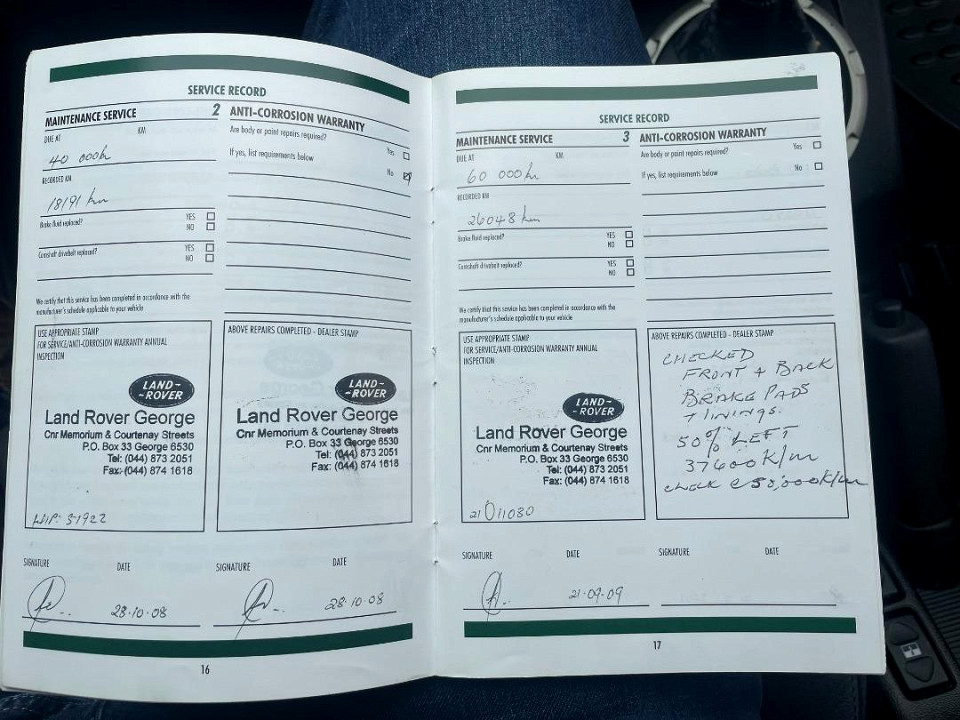 SERVICE RECORD
MAINTENANCE SERVICE 2
DUE AT KM
40 000km
RECORDED KM
18191 km
Brake fluid replaced? YES
NO
Camshaft drivebelt replaced? YES
NO
We certify that this service has been completed in accordance with the
manufacturer's schedule applicable to your vehicle
USE APPROPRIATE STAMP
FOR SERVICE/ANTI-CORROSION WARRANTY ANNUAL
INSPECTION
LAND-
-ROVER
Land Rover George
Cnr Memorium & Courtenay Streets
P.O. Box 33 George 6530
Tel: (044) 873 2051
Fax: (044) 874 1618
SIGNATURE DATE
28.10.08
ANTI-CORROSION WARRANTY
Are body or paint repairs required?
Yes
If yes, list requirements below
No
ABOVE REPAIRS COMPLETED - DEALER STAMP
LAND-
-ROVER
Land Rover George
Cnr Memorium & Courtenay Streets
P.O. Box 33 George 6530
Tel: (044) 873 2051
Fax: (044) 874 1618
SIGNATURE DATE
28.10.08
16
SERVICE RECORD
MAINTENANCE SERVICE 3
DUE AT KM
60 000km
RECORDED KM
26048 km
Brake fluid replaced? YES
NO
Camshaft drivebelt replaced? YES
NO
We certify that this service has been completed in accordance with the
manufacturer's schedule applicable to your vehicle
USE APPROPRIATE STAMP
FOR SERVICE/ANTI-CORROSION WARRANTY ANNUAL
INSPECTION
LAND-
-ROVER
Land Rover George
Cnr Memorium & Courtenay Streets
P.O. Box 33 George 6530
Tel: (044) 873 2051
Fax: (044) 874 1618
SIGNATURE DATE
21.09.09
ANTI-CORROSION WARRANTY
Are body or paint repairs required? Yes
If yes, list requirements below No
ABOVE REPAIRS COMPLETED - DEALER STAMP
CHECKED
FRONT + BACK
BRAKE PADS
+ LININGS.
50% LEFT
37600K/m
CHECK @ 50,000K/m
SIGNATURE DATE
17